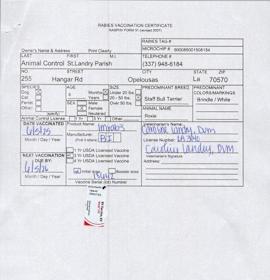 RABIES VACCINATION CERTIFICATE
NASPHV FORM 51 (revised 2007)
RABIES TAG #
MICROCHIP #
Owner's Name & Address Print Clearly
LAST FIRST M.I. TELEPHONE #
Animal Control St.Landry Parish (337) 948-6184
NO. STREET CITY STATE ZIP
255 Hangar Rd Opelousas La 70570
SPECIES AGE SIZE PREDOMINANT BREED PREDOMINANT COLORS/MARKINGS
Dog
Cat
Ferret
Other:
Months
Years
SEX
Male
Female
Neutered
Under 20 lbs.
20 - 50 lbs.
Over 50 lbs.
Staff Bull Terrier Brindle / White
ANIMAL NAME
Roxie
Animal Control License 1 Yr 3 Yr Other
DATE VACCINATED
6/5/25
Month / Day / Year
Product Name: Imrab
Manufacturer:
(First 3 letters)
Veterinarian's Name:
Caroline Landry, DVM
License Number:
Caroline Landry, DVM
Veterinarian's Signature
Address:
NEXT VACCINATION DUE BY:
6/5/26
Month / Day / Year
1 Yr USDA Licensed Vaccine
3 Yr USDA Licensed Vaccine
4 Yr USDA Licensed Vaccine
Initial dose Booster dose
Vaccine Serial (lot) Number